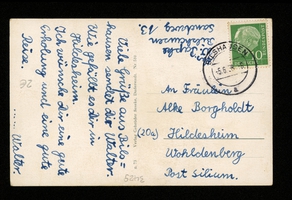 Viele Grüße aus Bils-
hausen sendet Dir Walter.
Wie gefällt es dir in
Hildesheim
Ich wünsche Dir eine gute
Erholung und eine gute
Reise.
.... Walter.
13
BILSHAUSEN
An Fräulein
Alke Borgholdt
(20a) Hildesheim
Wohldenberg
Post Silium.